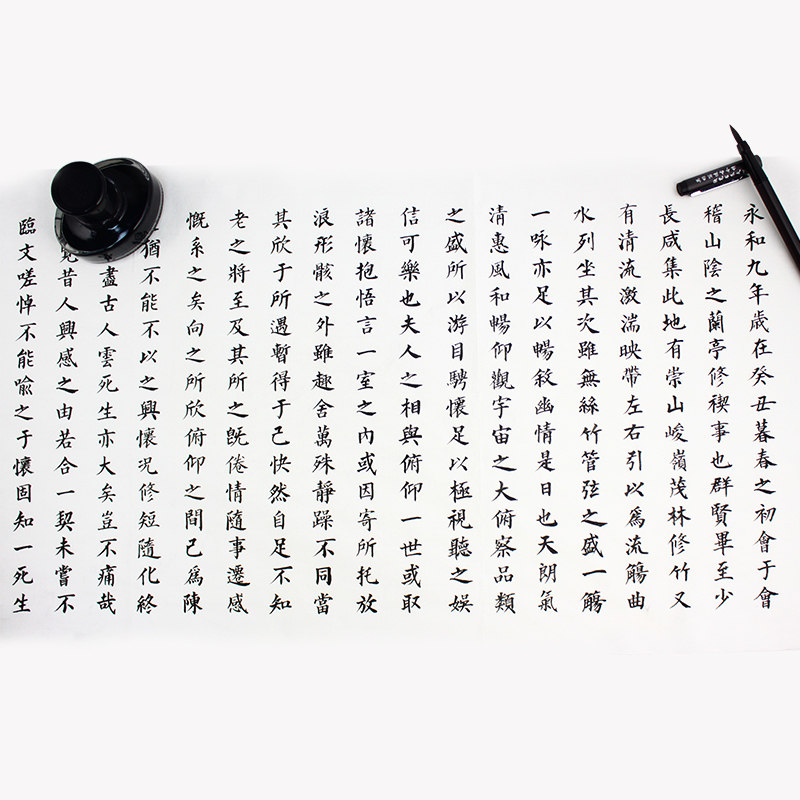 永和九年歲在癸丑暮春之初會于會
稽山陰之蘭亭修禊事也群賢畢至少
長咸集此地有崇山峻嶺茂林修竹又
有清流激湍映帶左右引以爲流觴曲
水列坐其次雖無絲竹管弦之盛一觴
一咏亦足以暢敘幽情是日也天朗氣
清惠風和暢仰觀宇宙之大俯察品類
之盛所以游目騁懷足以極視聽之娛
信可樂也夫人之相與俯仰一世或取
諸懷抱悟言一室之内或因寄所托放
浪形骸之外雖趣舍萬殊靜躁不同當
其欣于所遇暫得于己快然自足不知
老之將至及其所之既倦情隨事遷感
慨系之矣向之所欣俯仰之間已爲陳
猶不能不以之興懷况修短隨化終
盡古人雲死生亦大矣豈不痛哉
昔人興感之由若合一契未嘗不
臨文嗟悼不能喻之于懷固知一死生